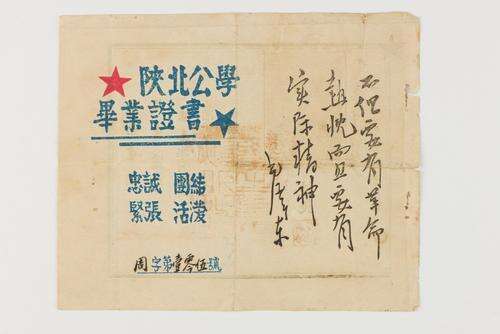 陝北公學
畢業證書
忠誠 團結
緊張 活潑
周字第壹零伍號
不但要有革命
熱忱而且要有
实际精神
毛泽东